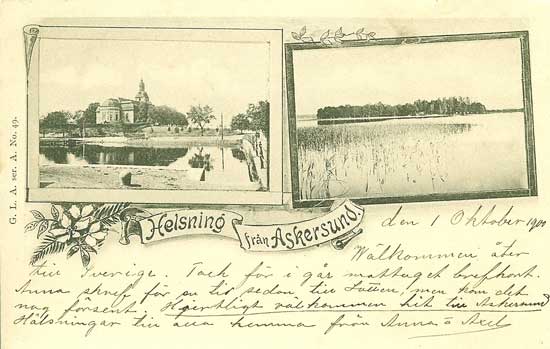 G. L. A. ser. A. No. 49.
Helsning
från Askersund.
den 1 Oktober 1900
Wälkommen åter
till Sverige. Tack för i går mottaget brefkort.
Anna skref för en tid sedan till Lotten, men kom det
nog försent. Hjertligt välkommen hit till Askersund
Hälsningar till alla hemma från Anna o Axel